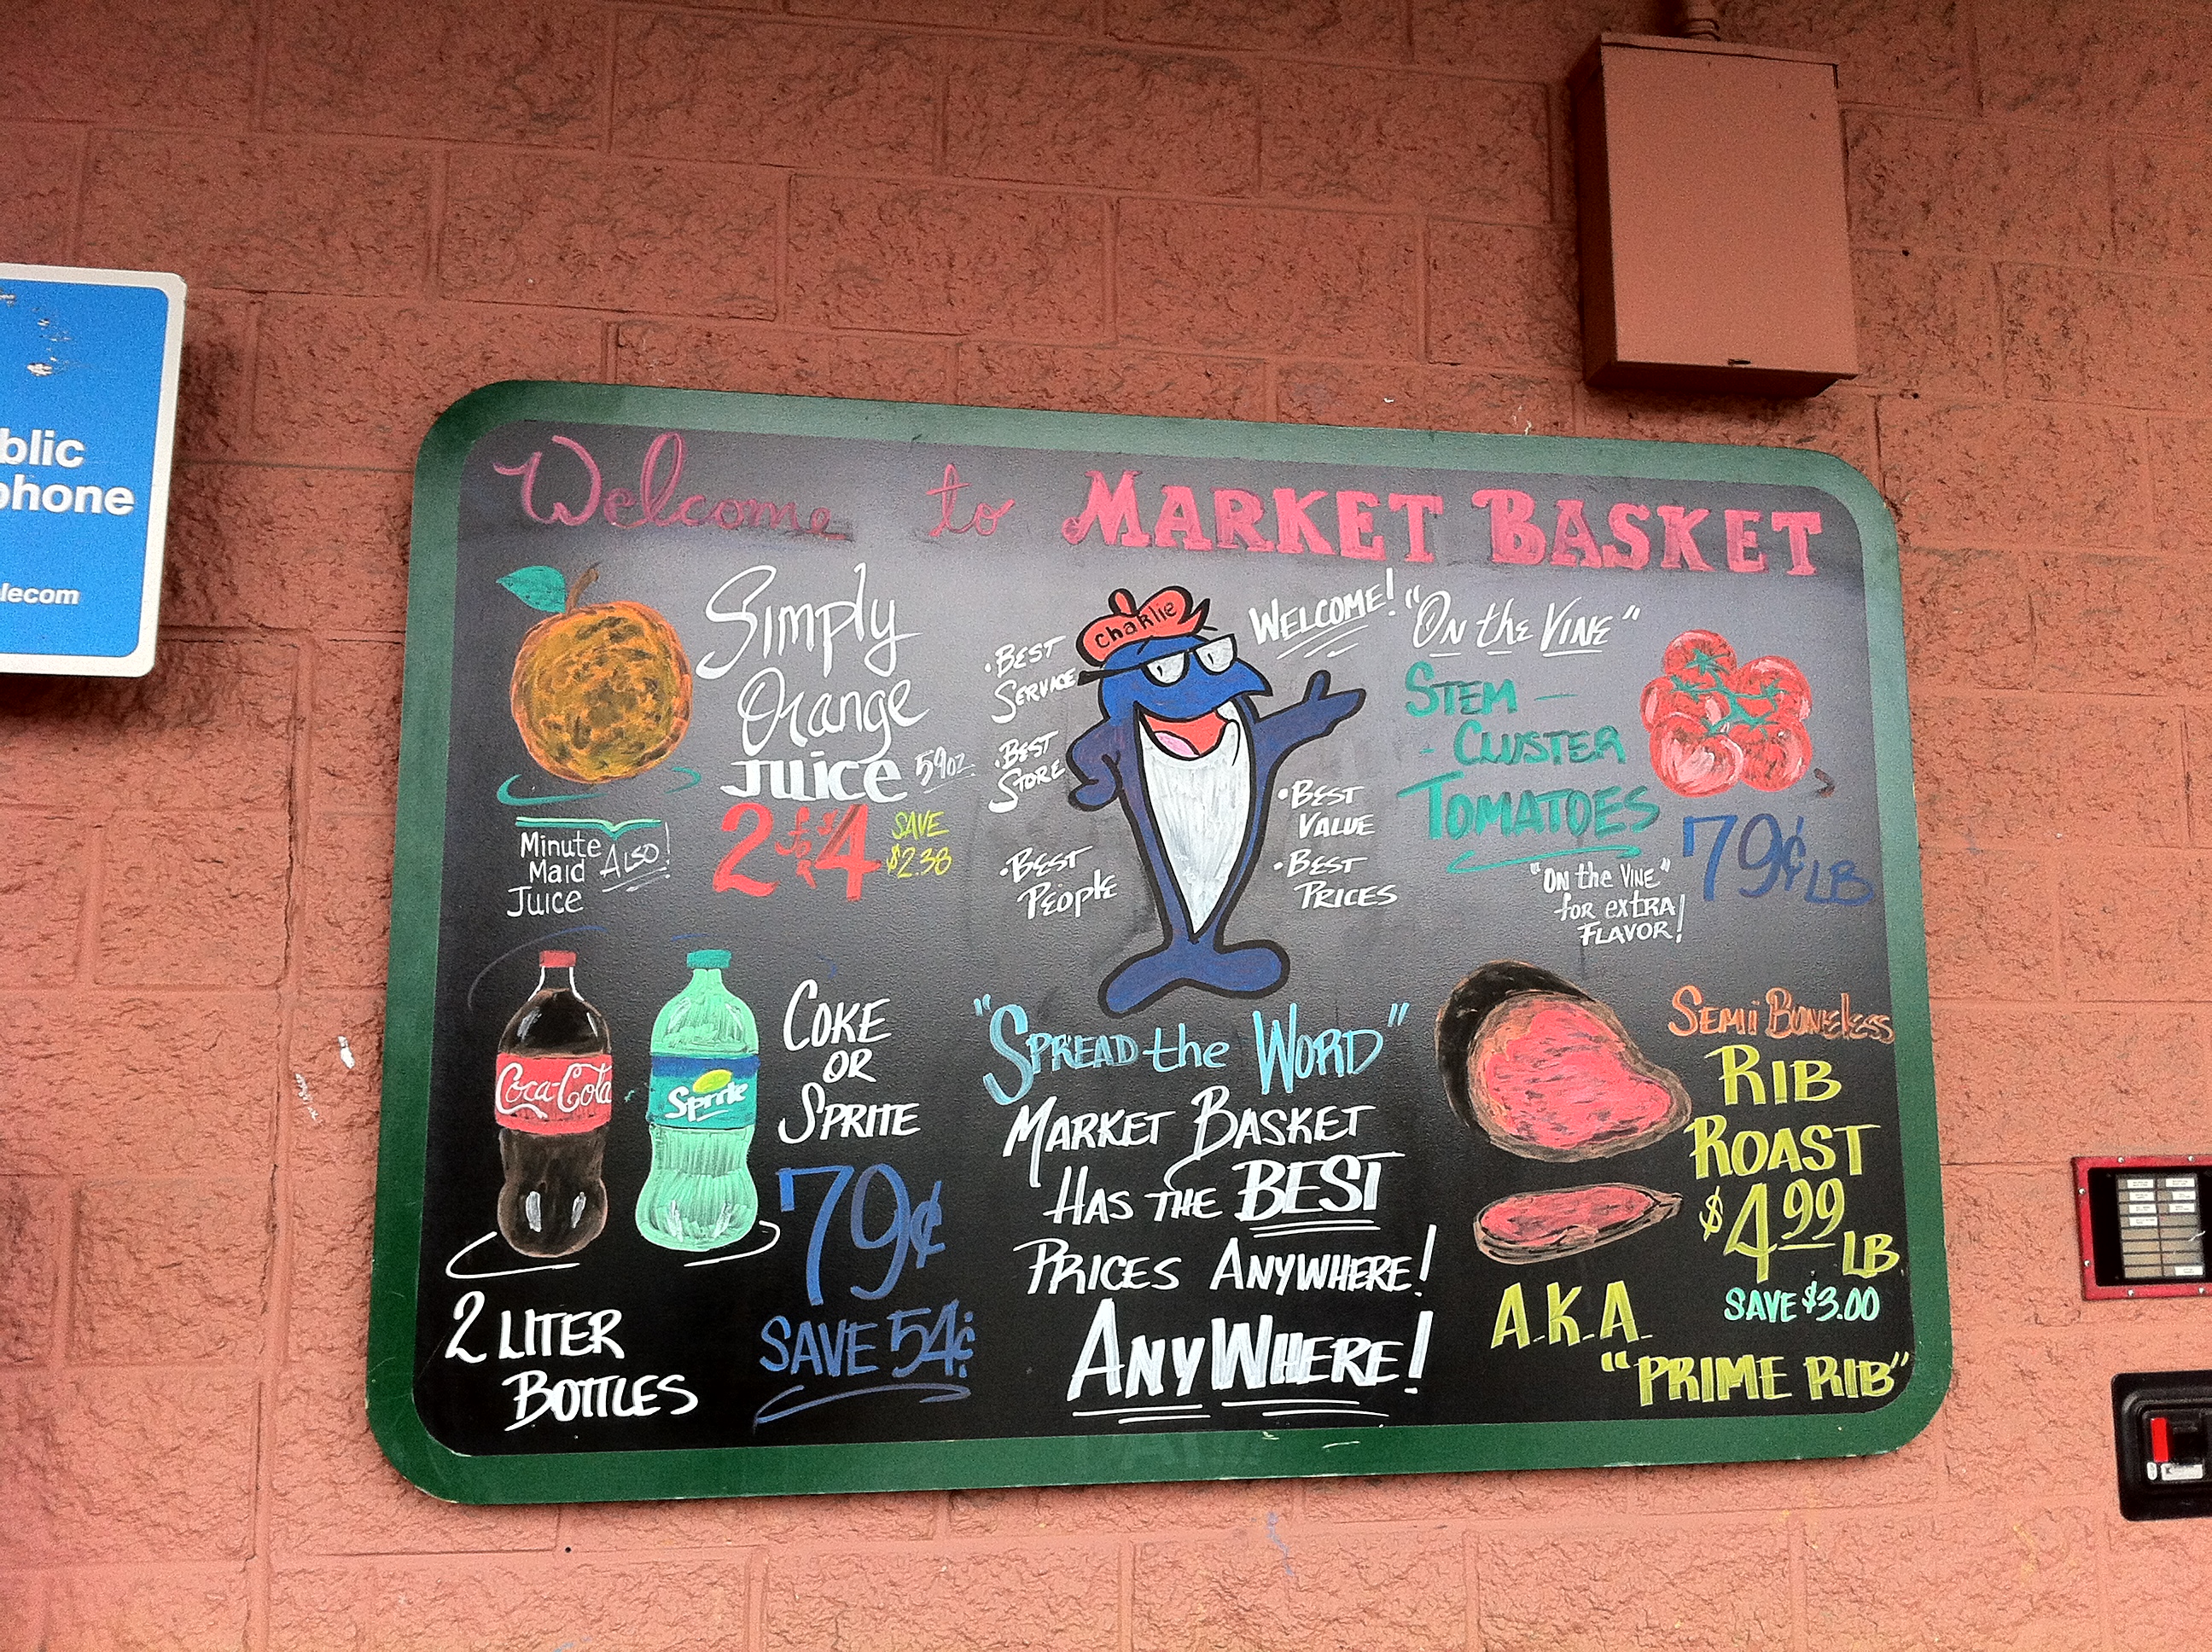 blic
phone
lecom
Welcome to MARKET BASKET
Simply
Orange
JUICE 59oz
2 for $4
SAVE
$2.38
Minute
Maid
Juice
ALSO!
Charlie
WELCOME!
• BEST
SERVICE
• BEST
STORE
• BEST
PEOPLE
• BEST
VALUE
• BEST
PRICES
"ON the VINE"
STEM -
- CLUSTER
TOMATOES
79¢ LB
"ON the VINE"
for extra
FLAVOR!
Coca-Cola
Sprite
COKE
OR
SPRITE
79¢
SAVE 54¢
2 LITER
BOTTLES
"SPREAD the WORD"
MARKET BASKET
HAS THE BEST
PRICES ANYWHERE!
ANYWHERE!
SEMI BONELESS
RIB
ROAST
$4.99 LB
SAVE $3.00
A.K.A.
"PRIME RIB"